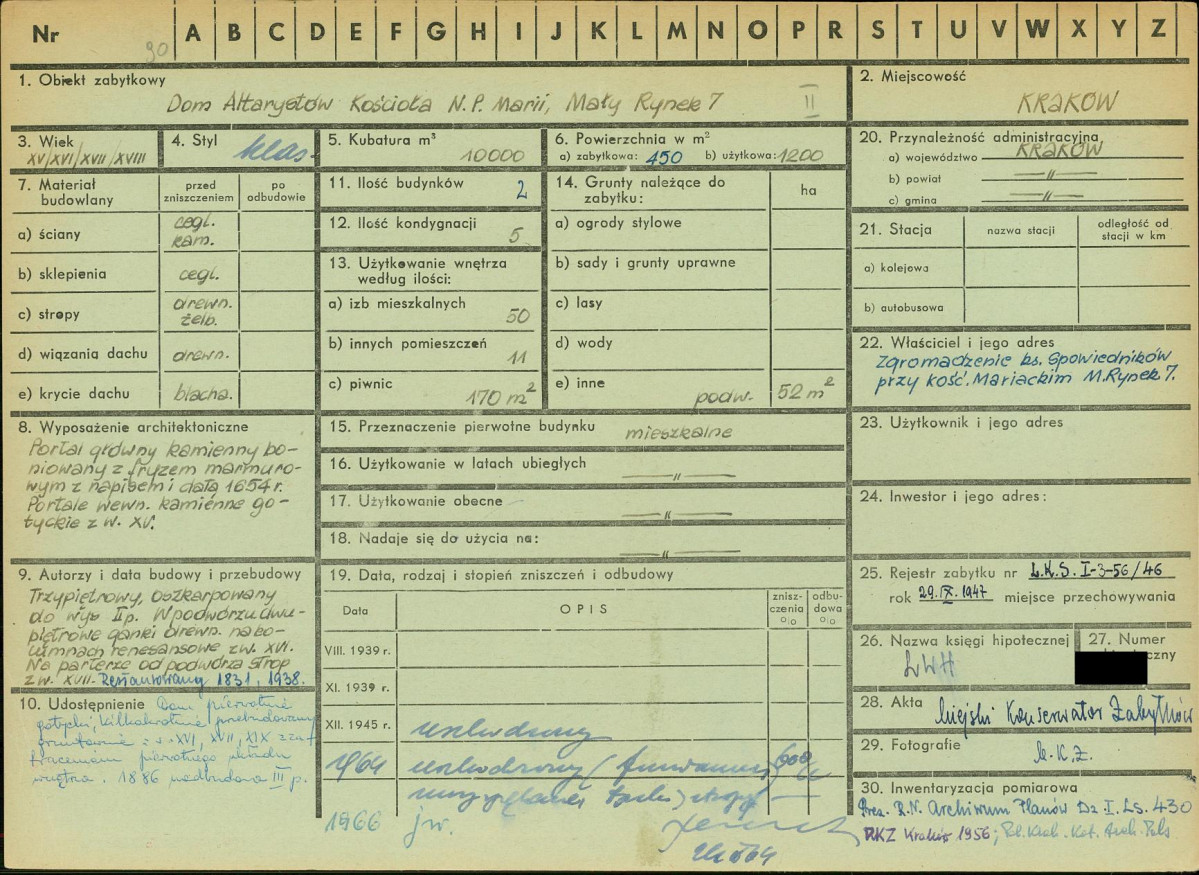 Nr 90 A B C D E F G H I J K L M N O P R S T U V W X Y Z
1. Obiekt zabytkowy
Dom Altarystów Kościoła N.P. Marii, Mały Rynek 7 II
2. Miejscowość
KRAKÓW
3. Wiek
XV/XVI/XVII/XVIII
4. Styl klas.
5. Kubatura m³
10000
6. Powierzchnia w m²
a) zabytkowa: 450 b) użytkowa: 1200
20. Przynależność administracyjna
a) województwo KRAKÓW
b) powiat —〃—
c) gmina —〃—
7. Materiał budowlany
przed zniszczeniem
po odbudowie
a) ściany cegl. kam.
b) sklepienia cegl.
c) stropy drewn. żelb.
d) wiązania dachu drewn.
e) krycie dachu blacha.
11. Ilość budynków 2
12. Ilość kondygnacji 5
13. Użytkowanie wnętrza
według ilości:
a) izb mieszkalnych 50
b) innych pomieszczeń 11
c) piwnic 170 m²
14. Grunty należące do
zabytku: ha
a) ogrody stylowe
b) sady i grunty uprawne
c) lasy
d) wody
e) inne podw. 52 m²
21. Stacja
nazwa stacji
odległość od
stacji w km
a) kolejowa
b) autobusowa
22. Właściciel i jego adres
Zgromadzenie ks. Spowiedników
przy kość. Mariackim M.Rynek 7.
8. Wyposażenie architektoniczne
Portal główny kamienny bo-
niowany z fryzem marmuro-
wym z napisem i datą 1654 r.
Portale wewn. kamienne go-
tyckie z w. XV.
15. Przeznaczenie pierwotne budynku mieszkalne
16. Użytkowanie w latach ubiegłych —〃—
17. Użytkowanie obecne —〃—
18. Nadaje się do użycia na: —〃—
23. Użytkownik i jego adres
24. Inwestor i jego adres:
9. Autorzy i data budowy i przebudowy
Trzypiętrowy, oszkarpowany
do wys. II p. W podwórzu dwu-
piętrowe ganki drewn. na ko-
lumnach renesansowe z w. XVI.
Na parterze od podwórza strop
z w. XVII. Restaurowany 1831, 1938.
10. Udostępnienie Dom pierwotnie
gotycki, kilkakrotnie przebudowany
gruntownie w XVI, XVII, XIX z zat-
traceniem pierwotnego układu
wnętrza. 1886 nadbudowa III p.
19. Data, rodzaj i stopień zniszczeń i odbudowy
Data
OPIS
znisz-
czenia
%
odbu-
dowa
%
VIII. 1939 r.
XI. 1939 r.
XII. 1945 r.
1964
1966 jw.
25. Rejestr zabytku nr L.K.S. I-3-56/46
rok 29.IX.1947 miejsce przechowywania
26. Nazwa księgi hipotecznej
LWH
27. Numer
28. Akta Miejski Konserwator Zabytków
29. Fotografie
M.K.Z.
30. Inwentaryzacja pomiarowa
Prez. R.N. Archiwum Planów Dz I. Ls. 430
PKZ Kraków 1956;